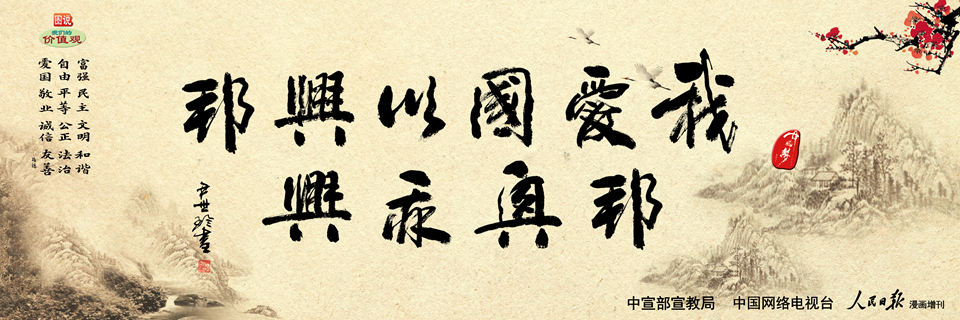 图说
我们的
价值观
富强 民主 文明 和谐
自由 平等 公正 法治
爱国 敬业 诚信 友善
我愛國以興邦
邦興
中国梦
中宣部宣教局 中国网络电视台 人民日报 漫画增刊